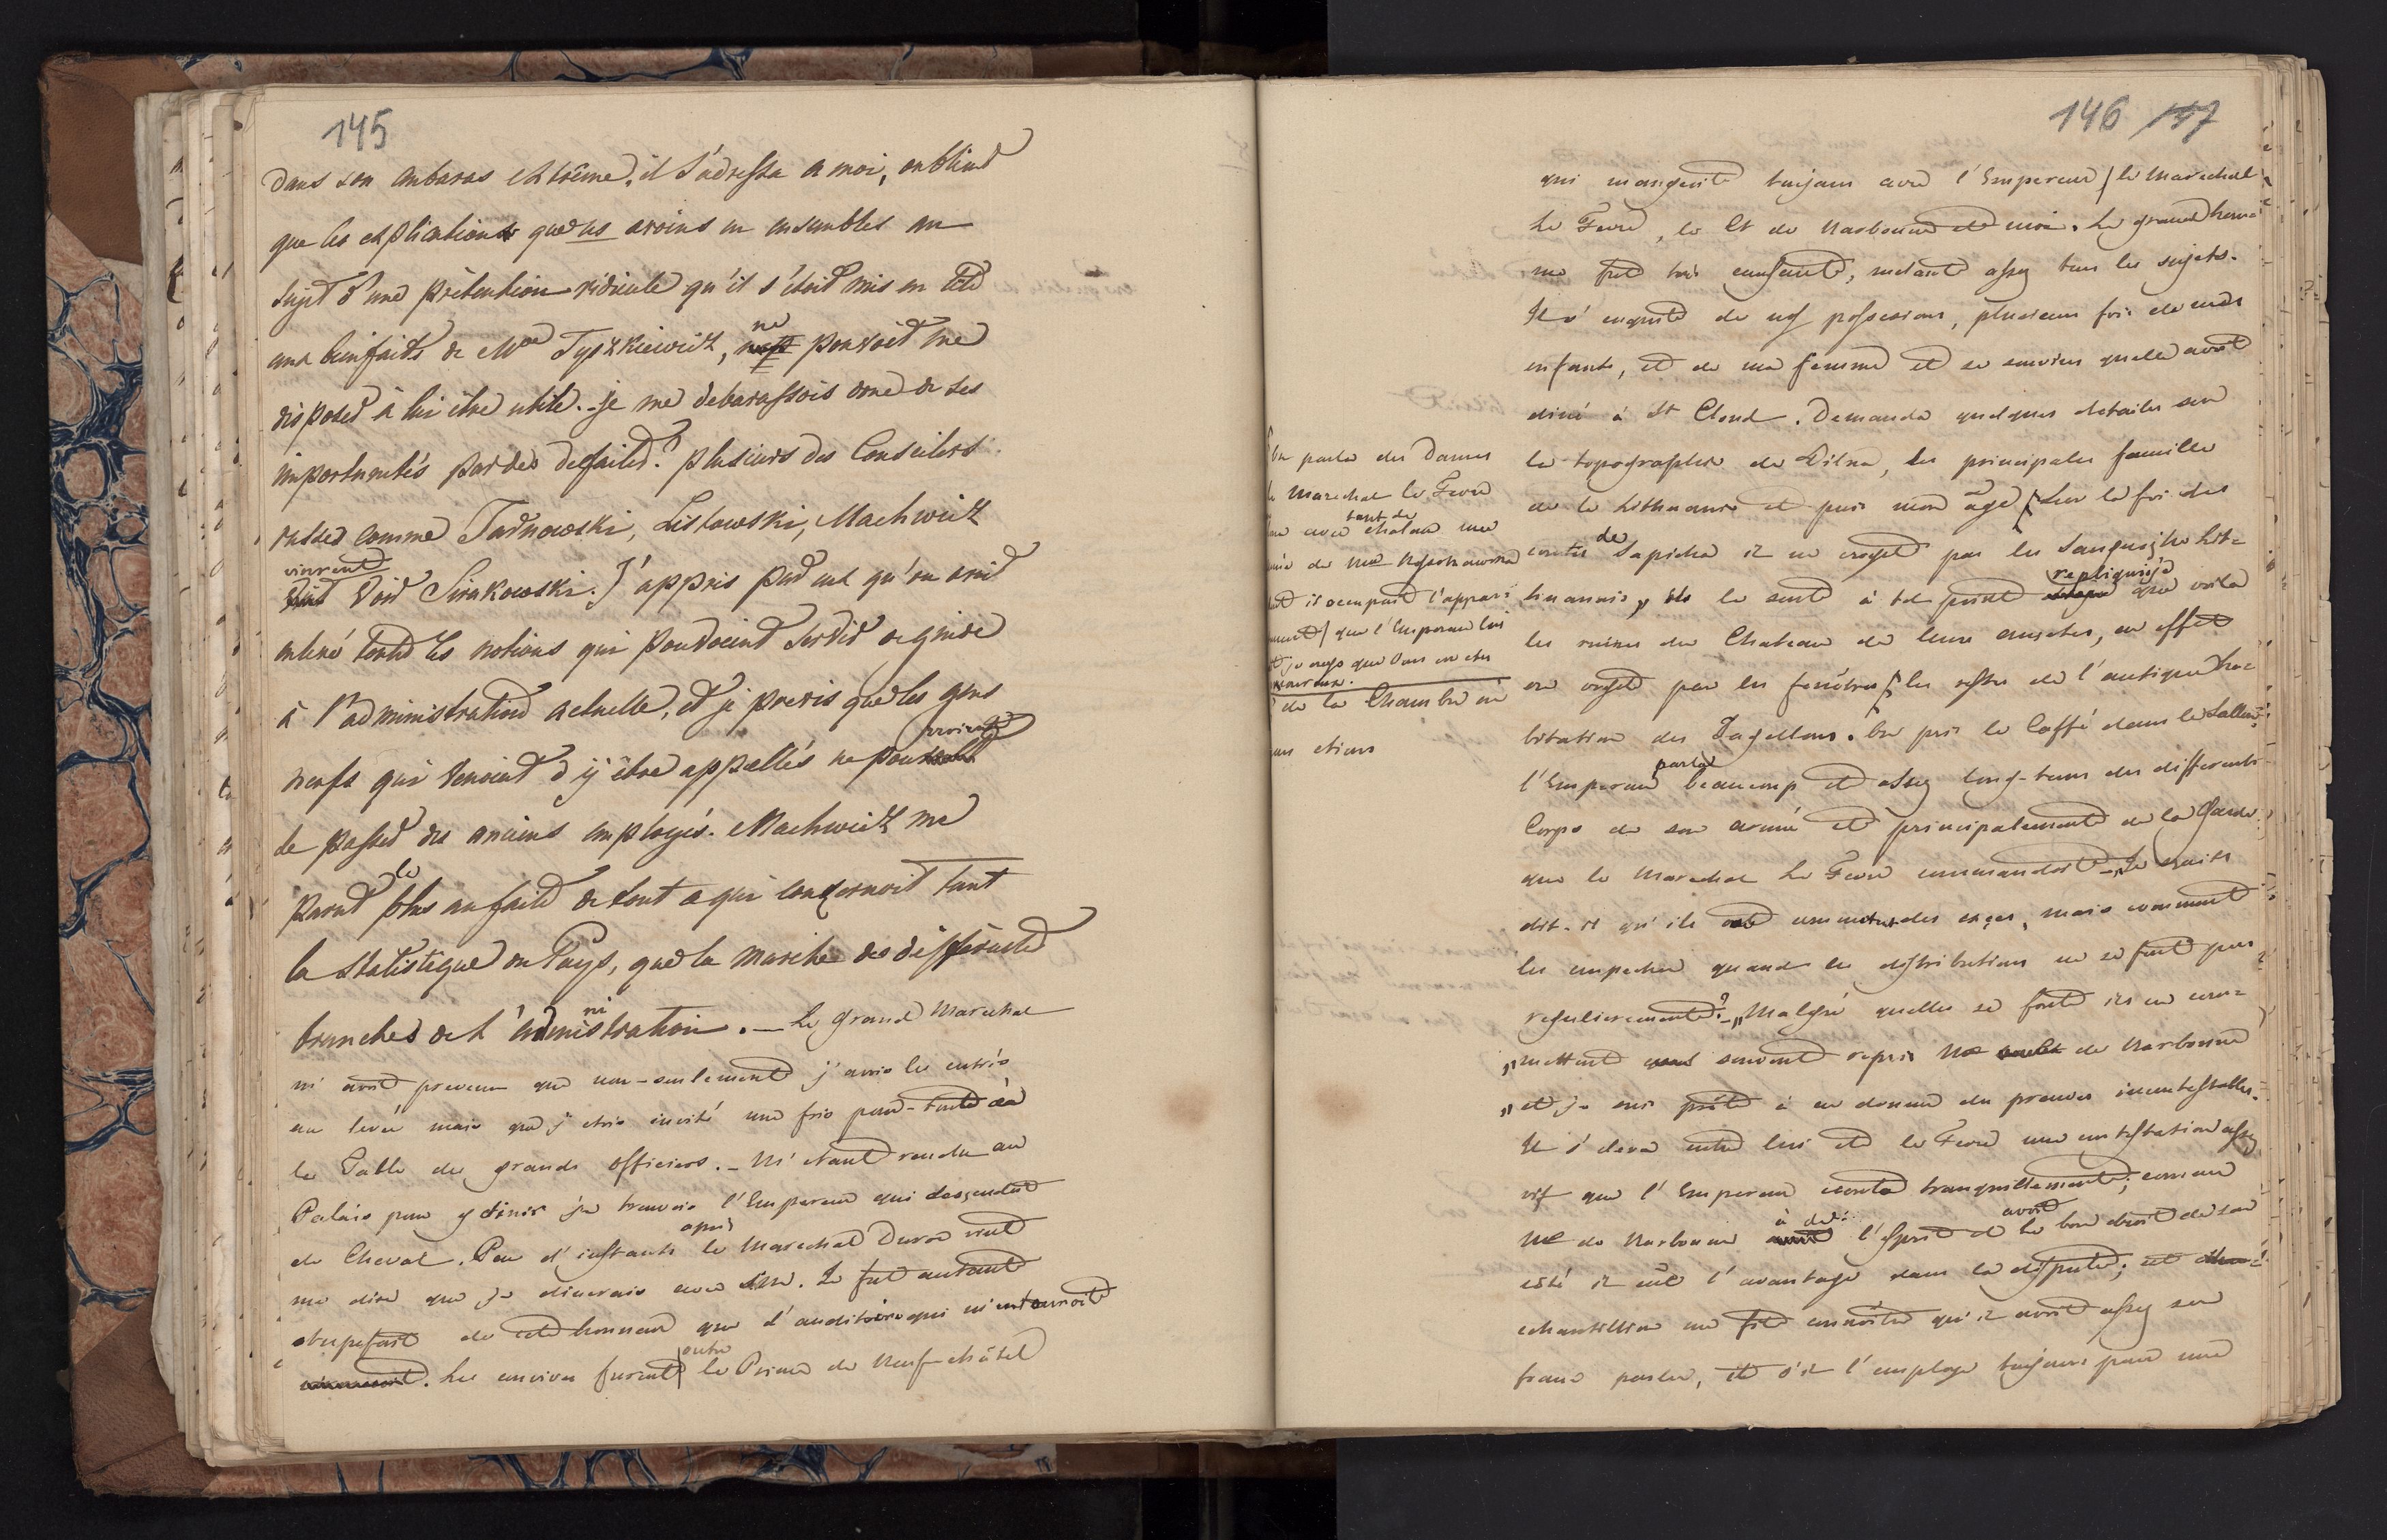 145
dans son anbaras extrême, il s'adressa a moi, oubliant
que les explications que ns avoins eu ensembles au
sujet d'une prétention ridicule qu'il s'étoit mis en tête
aux bienfaits de Mde Tyszkiewicz, ne pouvoit me
disposer à lui être utile. je me debarassois donc de ses
importunités par des defaites. plusieurs des Conseilers
russes comme Tarnowski, Listowski, Machwicz
vinrent voir Sirakowski. J'appris par eux qu'on avoit
enlevé toutes les notions qui pouvoient servir de guide
à l'administration actuelle, et je previs que les gens
neufs qui venoint d'y être appellés ne pourroient
se passer des anciens employés. Machwicz me
parut le plus au faite de tout ce qui concernoit tant
la statistique du Pays, que la marche des différentes
branches de l'administration. – Le grand Marechal
m'avoit prevenu que non-seulement j'avois les entrés
au levée mais que j'etois invité une fois pour-toute à
la Table des grands officiers. – M'etant rendu au
Palais pour y diner j'y trouvois l'Empereur qui descendoit
de Cheval. Peu d'instants après le Marechal Duroc vint
me dire que je dinerais avec . Je fut autant
stupefait de cet honneur que l'auditoire qui m'entouroit
. Les convives furent outre le Prince de Neuf-châtel
146 147
qui mangeoit toujours avec l'Empereur le Marechal
Le Fevre, le Ct de Narbonne et moi. Le grand hom=
me fut très causant, melant assez tous les sujets.
Il s'enquit de mes possessions, plusieurs fois de mes
enfants, et de ma femme et se souvint quelle avoit
diné à St Cloud. Demanda quelques details sur
la topographie de Vilna, les principales famille
de la Lithuanie et puis mon âge Sur la foi des
contes de Sapieha il ne croyoit pas les Sanguszko Lit=
huaniens, le sent à tel point repliquois-je que voila
les ruines du Chateau de leurs ancetres, en effet
on voyoit par les fenêtres les restes de l'antique ha=
bitation des Jagellons. On pris le Caffé dans le Sallon
l'Empereur parla beaucoup et assez long-tems des differents
Corps de son armée et principalement de la Garde
que le Marechal Le Fevre commandoit – „Je crains
dit-il qu'ils commettent des exces, mais comment
les empecher quand les distributions ne se font pas
regulierement? – „Malgré quelles se font ils en com=
„mettent souvent repris Mr de Narbonne
„et je suis prêt à en donner des preuves incontestables.
Il s'eleva entre lui et le Fevre une contestation assez
vif que l'Empereur ecouta tranquillement; comme
Mr de Narbonne à de l'esprit et avoit le bon droit de son
coté il eut l'avantage dans la dispute; et
echantillon me fit connoître qu'il avoit assez son
franc parler, et s'il l'employe toujours pour une
On parla des Dames
le Marechal le Fevre
avec tant de chaleur une
de Me
il occupoit l'appar=
tement que l'Empereur lui
je crois que vous en etes
amoureux.
de la Chambre où
nous etions